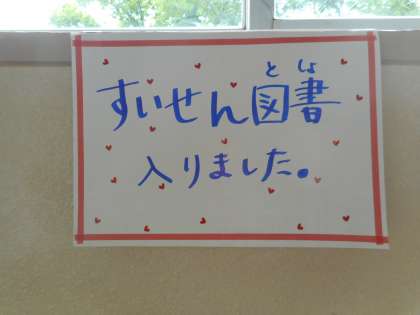 としょ
すいせん図書
入りました。